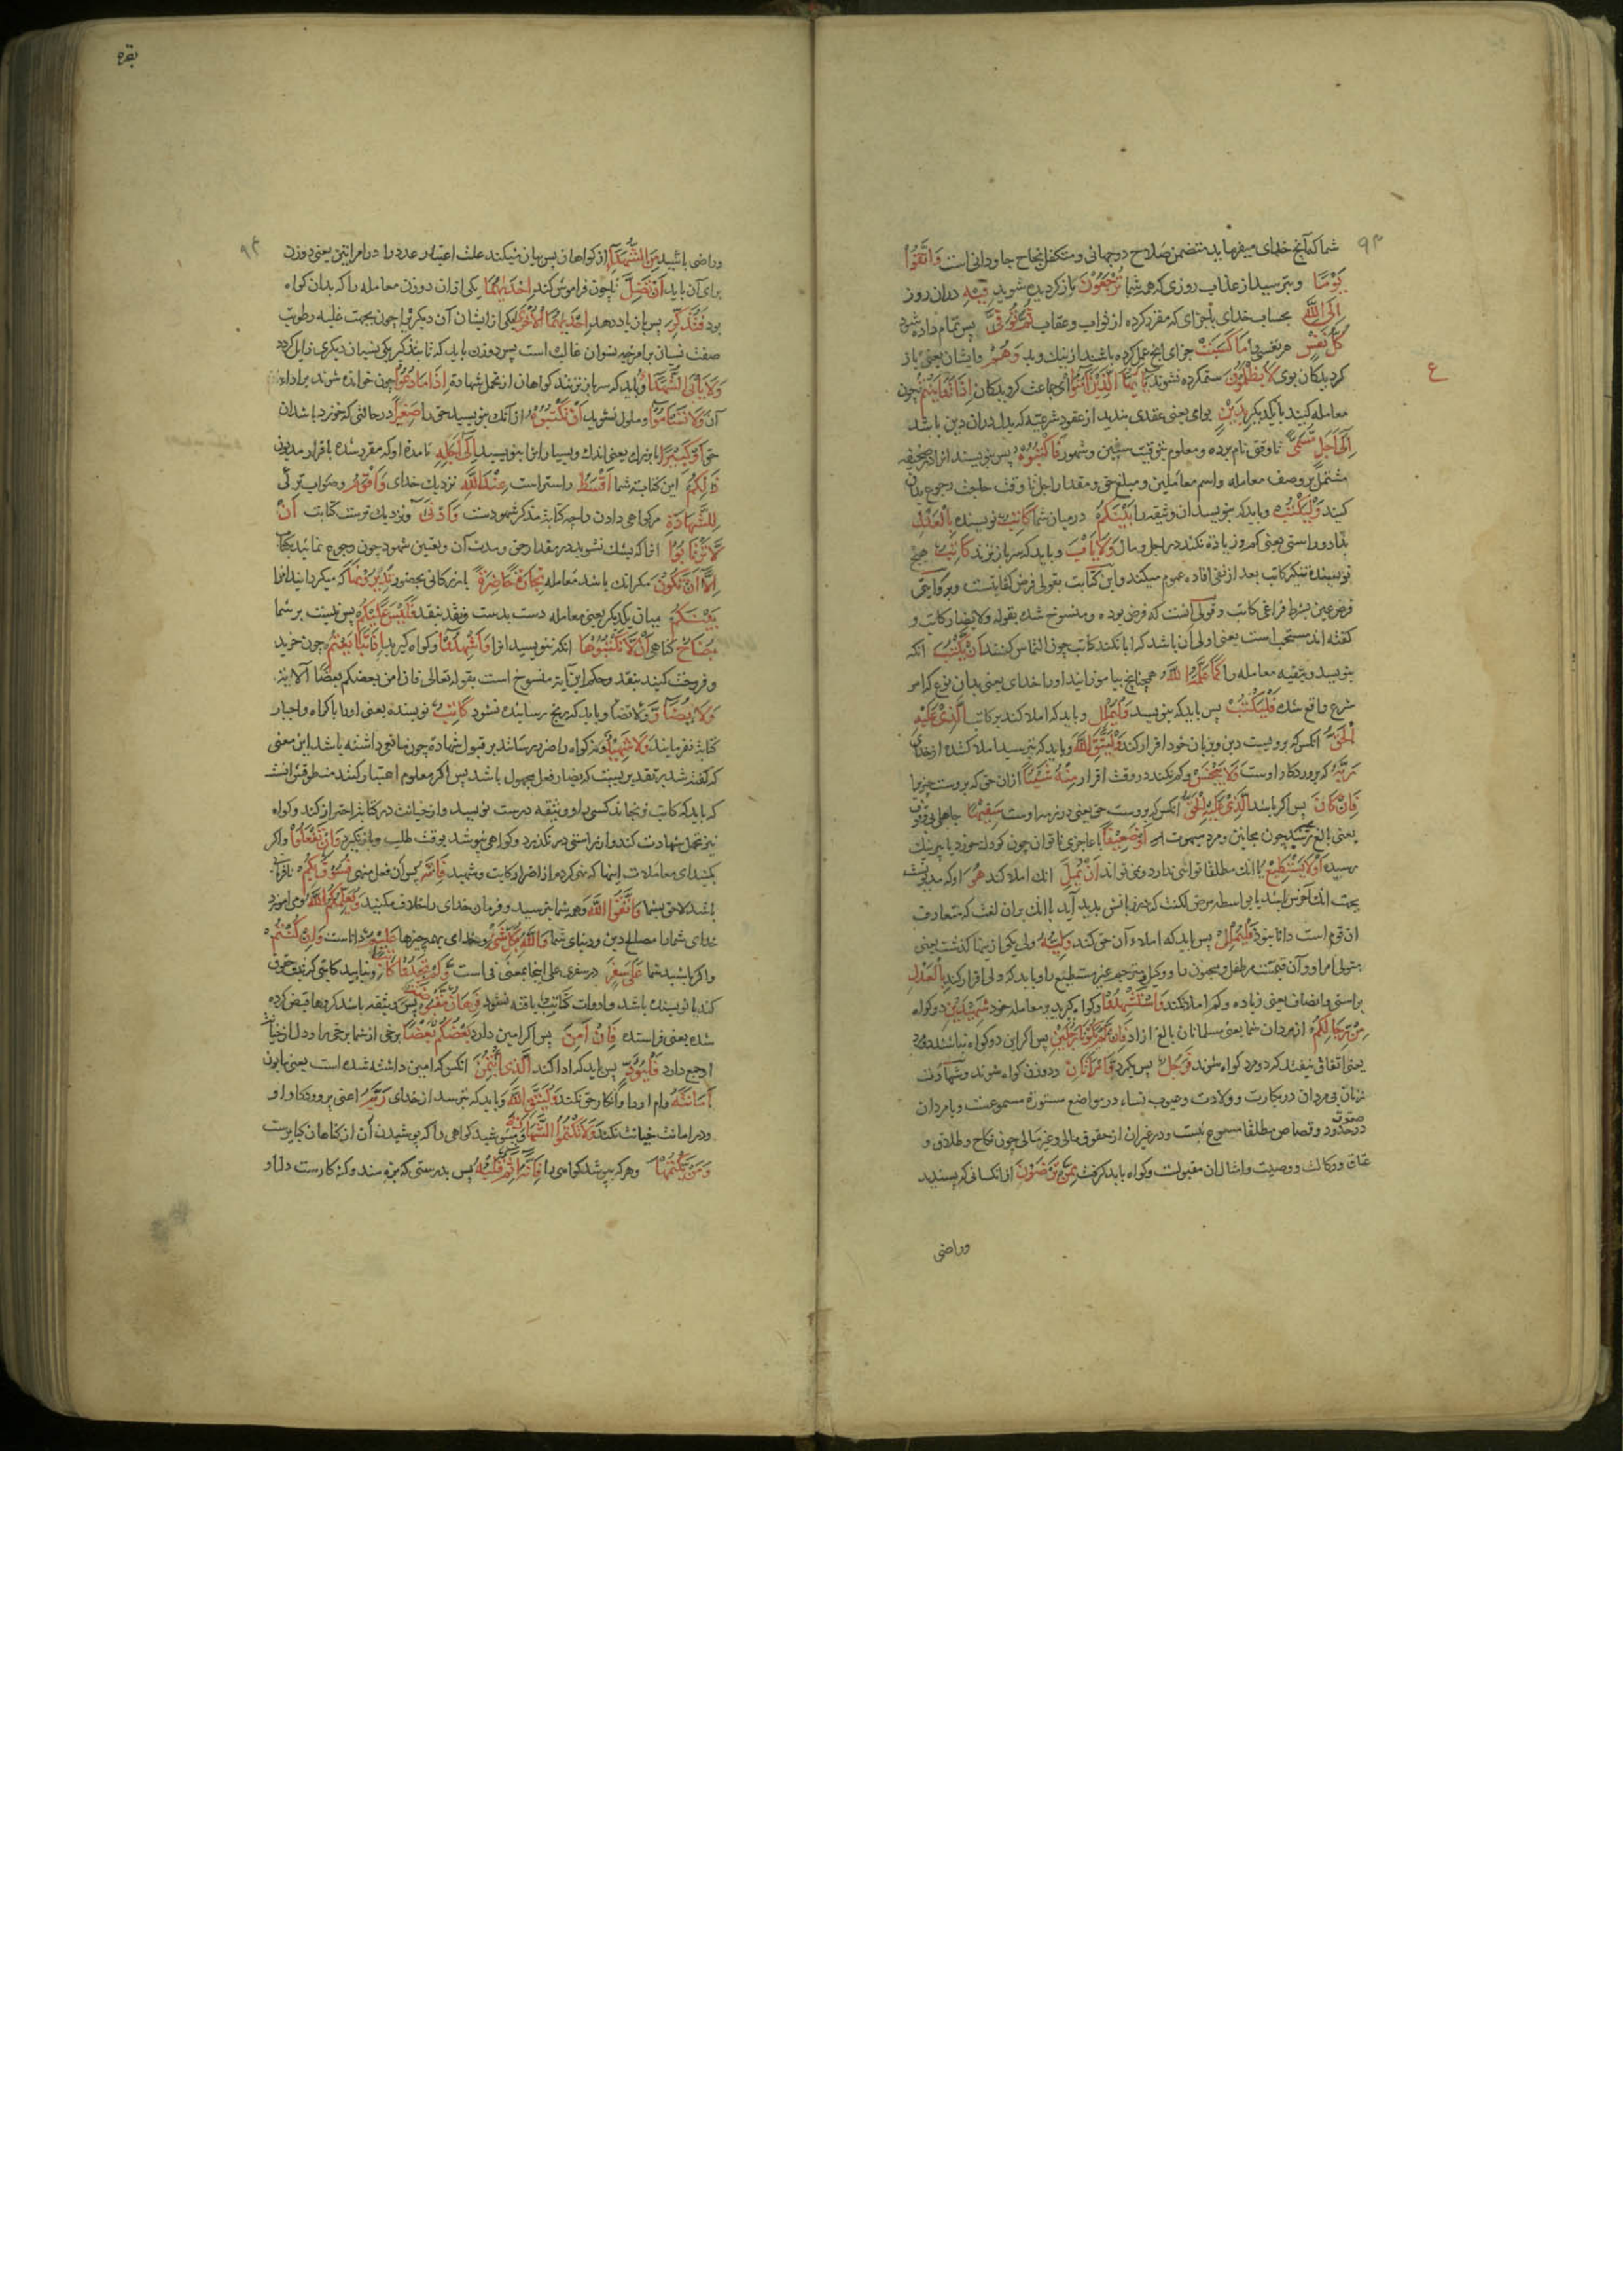 ۹۳
شما که آنچ خدای میفرماید متضمن صلاح دوجهانی و متکفل نجاح جاودانی است وَاتَّقُوا
يَوْمًا و بترسید از عذاب روزی که همه شما تُرْجَعُونَ باز کردیده شوید فِيهِ دران روز
اِلَى اللَّهِ بحساب خدای یا جزای که مقرر کرده از ثواب و عقاب ثُمَّ تُوَفَّى پس تمام داده شود
كُلُّ نَفْسٍ هر نفسی را مَا كَسَبَتْ جزای انچ عمل کرده باشند از نیک و بد وَهُمْ و ایشان یعنی باز
کردیدکان بوی لَا يُظْلَمُونَ ستم کرده نشوند يَا أَيُّهَا الَّذِينَ آمَنُوا ای جماعت کردیدکان إِذَا تَدَايَنْتُمْ چون
ع
معامله کنید با یکدیکر بِدَيْنٍ بوامی یعنی عقدی بندید از عقود شرعیه که بدل دران دین باشد
إِلَى أَجَلٍ مُسَمًّى تا وقتی نام برده و معلوم بتوقیت سنین و شهور فَاكْتُبُوهُ پس بنویسید انرا در صحیفه
مشتمل بر وصف معامله و اسم معاملین و مبلغ حق و مقدار اجل تا وقت حاجت رجوع بدان
کنید وَلْيَكْتُبْ و باید که بنویسد ان وثیقه را بَيْنَكُمْ درمیان شما كَاتِبٌ نویسنده بِالْعَدْلِ
بداد و راستی یعنی کم و زیاده نکند در اجل و مال وَلَا يَأْبَ و باید که سر باز نزند كَاتِبٌ هیچ
نویسنده تنکیر کاتب بعد از نفی افاده عموم میکند و این کتابت بقولی فرض کفایتست و بروایتی
فرض عین بشرط فراغی کاتب و قولی آنست که فرض بوده و منسوخ شده بقوله ولا یضار کاتب و
کفته اند مستحب است یعنی اولی آن باشد که ابا نکند کاتب چون التماس کنند أَنْ يَكْتُبَ انکه
بنویسد وثیقه معامله را كَمَا عَلَّمَهُ اللَّهُ همچنانچ بیاموزانید او را خدای یعنی بدان نوع که امر
شرع واقع شده فَلْيَكْتُبْ پس باید که بنویسد وَلْيُمْلِلِ و باید که املا کند بر کاتب الَّذِي عَلَيْهِ
الْحَقُّ انکس که بر ویست دین و بزبان خود اقرار کند وَلْيَتَّقِ اللَّهَ و باید که بترسد املا کننده از خدای
رَبَّهُ که پروردکار اوست وَلَا يَبْخَسْ و کم نکند در وقت اقرار مِنْهُ شَيْئًا ازان حق که بروست چیزیرا
فَإِنْ كَانَ پس اکر باشد الَّذِي عَلَيْهِ الْحَقُّ انکس که بروست حق یعنی در ذمه اوست سَفِيهًا جاهلی بی‌وقوف
أَوْ ضَعِيفًا یا عاجزی ناتوان چون کودک خورد یا پیر نیک
رسیده أَوْ لَا يَسْتَطِيعُ یا انک مطلقا توانی ندارد و نمی تواند أَنْ يُمِلَّ انک املا کند هُوَ او که مدیونست
ان قوم است دانا نبود فَلْيُمْلِلْ پس باید که املاء آن حق کند وَلِيُّهُ ولی یکی از ینها که کذشت یعنی
متولی امر او و آن قیمست مر طفل و مجنون را و وکیل و مترجم غیر مستطیع را و باید که ولی اقرار کند بِالْعَدْلِ
براستی و انصاف یعنی زیاده و کم املا نکند وَاسْتَشْهِدُوا و کواه کیرید بر معامله خود شَهِيدَيْنِ دو کواه
مِنْ رِجَالِكُمْ از مردان شما یعنی مسلمانان بالغ ازاد فَإِنْ لَمْ يَكُونَا رَجُلَيْنِ پس اکر این دو کواه نباشند دو مرد
یعنی اتفاق نیفتد که دو مرد کواه شوند فَرَجُلٌ پس یکمرد وَامْرَأَتَانِ و دو زن کواه شوند و شهادت
زنان بی مردان در بکارت و ولادت و عیوب نساء در مواضع مستوره مسموعست و با مردان
در حدود و قصاص مطلقا مسموع نیست و در غیر ان از حقوق مالی و غیر مالی چون نکاح و طلاق و
عتاق و وکالت و وصیت و امثال ان مقبولست و کواه باید کرفت مِمَّنْ تَرْضَوْنَ از انکسانی که پسندید
وراضی
بقره
۹۴
وراضی باشید مِنَ الشُّهَدَاءِ از کواهان پس بیان میکند علت اعتبار عدد را در امراتین یعنی دو زن
برای آن باید أَنْ تَضِلَّ تا چون فراموش کند إِحْدَاهُمَا یکی ازان دو زن معامله را که بدان کواه
بود فَتُذَكِّرَ پس بازیاد دهد إِحْدَاهُمَا الْأُخْرَى یکی از ایشان آن دیکریرا چون بجهت غلبه رطوبت
صفت نسیان بر امزجه نسوان غالب است پس دو زن باید که تا بتذکیر یکی نسیان دیکری زایل کردد
وَلَا يَأْبَ الشُّهَدَاءُ و باید که سر باز نزنند کواهان از تحمل شهادة إِذَا مَا دُعُوا چون خوانده شوند برای اداء
آن وَلَا تَسْأَمُوا و ملول نشوید أَنْ تَكْتُبُوهُ از آنک بنویسید حق را صَغِيرًا در حالتی که خورد باشد ان
حق أَوْ كَبِيرًا یا بزرک یعنی اندک و بسیار انرا بنویسید إِلَى أَجَلِهِ تا مدة او که مقرر شده باقرار مدیون
ذَلِكُمْ این کتابت شما أَقْسَطُ راستر است عِنْدَ اللَّهِ نزدیک خدای وَأَقْوَمُ و صواب تر
لِلشَّهَادَةِ مر کواهی دادن را چه کتابة مذکر شهودست وَأَدْنَى و نزدیک ترست کتابت أَنْ
لَا تَرْتَابُوا انرا که بشک نشوید در مقدار حق و مدت آن و تعیین شهود چون رجوع نمائید بکتاب
إِلَّا أَنْ تَكُونَ مکر انک باشد معامله تِجَارَةً حَاضِرَةً بازرکانی بحضور تُدِيرُونَهَا که میکردانید انرا
بَيْنَكُمْ میان یکدیکر یعنی معامله دست بدست و نقد بنقد فَلَيْسَ عَلَيْكُمْ پس نیست بر شما
جُنَاحٌ کناهی أَلَّا تَكْتُبُوهَا انکه ننویسید انرا وَأَشْهِدُوا و کواه کیرید إِذَا تَبَايَعْتُمْ چون خرید
و فروخت کنید بنقد و حکم این آیة منسوخ است بقوله تعالی فان امن بعضکم بعضا الآیة
وَلَا يُضَارَّ و باید که رنج رسانیده نشود كَاتِبٌ نویسنده یعنی او را باکراه و اجبار
کتابة نفرمایند وَلَا شَهِيدٌ و نه کواه و اضرار نرسانند بر قبول شهادة چون مانعی داشته باشد این معنی
که کفته شد بتقدیریست که یضار فعل مجهول باشد پس اکر معلوم اعتبار کنند منطوق آنست
که باید که کاتب نرنجاند کسی را و وثیقه درست نویسد و از خیانت در کتابة احتراز کند و کواه
نیز تحمل شهادت کند و از راستی در نکذرد و کواهی نپوشد بوقت طلب و باز نکیرد وَإِنْ تَفْعَلُوا و اکر
بکنید ای معاملان اینها که نهی کردم از اضرار کاتب و شهید فَإِنَّهُ پس آن فعل منهی فُسُوقٌ بِكُمْ نافرمانی
باشد لاحق بشما وَاتَّقُوا اللَّهَ و هم شما بترسید و فرمان خدای را خلاف مکنید وَيُعَلِّمُكُمُ اللَّهُ و می اموزد
خدای شما را مصالح دین و دنیای شما وَاللَّهُ بِكُلِّ شَيْءٍ و خدای بهمه چیزها عَلِيمٌ داناست وَإِنْ كُنْتُمْ
و اکر باشید شما عَلَى سَفَرٍ در سفری علی اینجا بمعنی فی است وَلَمْ تَجِدُوا كَاتِبًا و نیابید کاتبی که توثیق حقوق
کند یا نویسنده باشد و ادوات کتابت یافته نشود فَرِهَانٌ مَقْبُوضَةٌ پس وثیقه باشد کروها قبض کرده
شده یعنی فراستده فَإِنْ أَمِنَ پس اکر امین دارد بَعْضُكُمْ بَعْضًا برخی از شما برخی را و دل از خیانت
او جمع دارد فَلْيُؤَدِّ پس باید که ادا کند الَّذِي اؤْتُمِنَ انکس که امین داشته شده است یعنی مدیون
أَمَانَتَهُ وام او را و انکار حق نکند وَلْيَتَّقِ اللَّهَ و باید که بترسد از خدای رَبَّهُ اعنی پروردکار او
و در امانت خیانت نکند وَلَا تَكْتُمُوا الشَّهَادَةَ و مپوشید کواهی را که پوشیدن آن از کناهان کبایرست
وَمَنْ يَكْتُمْهَا و هر که بپوشد کواهی را فَإِنَّهُ آثِمٌ قَلْبُهُ پس بدرستی که بزه مند و کنه کارست دل او